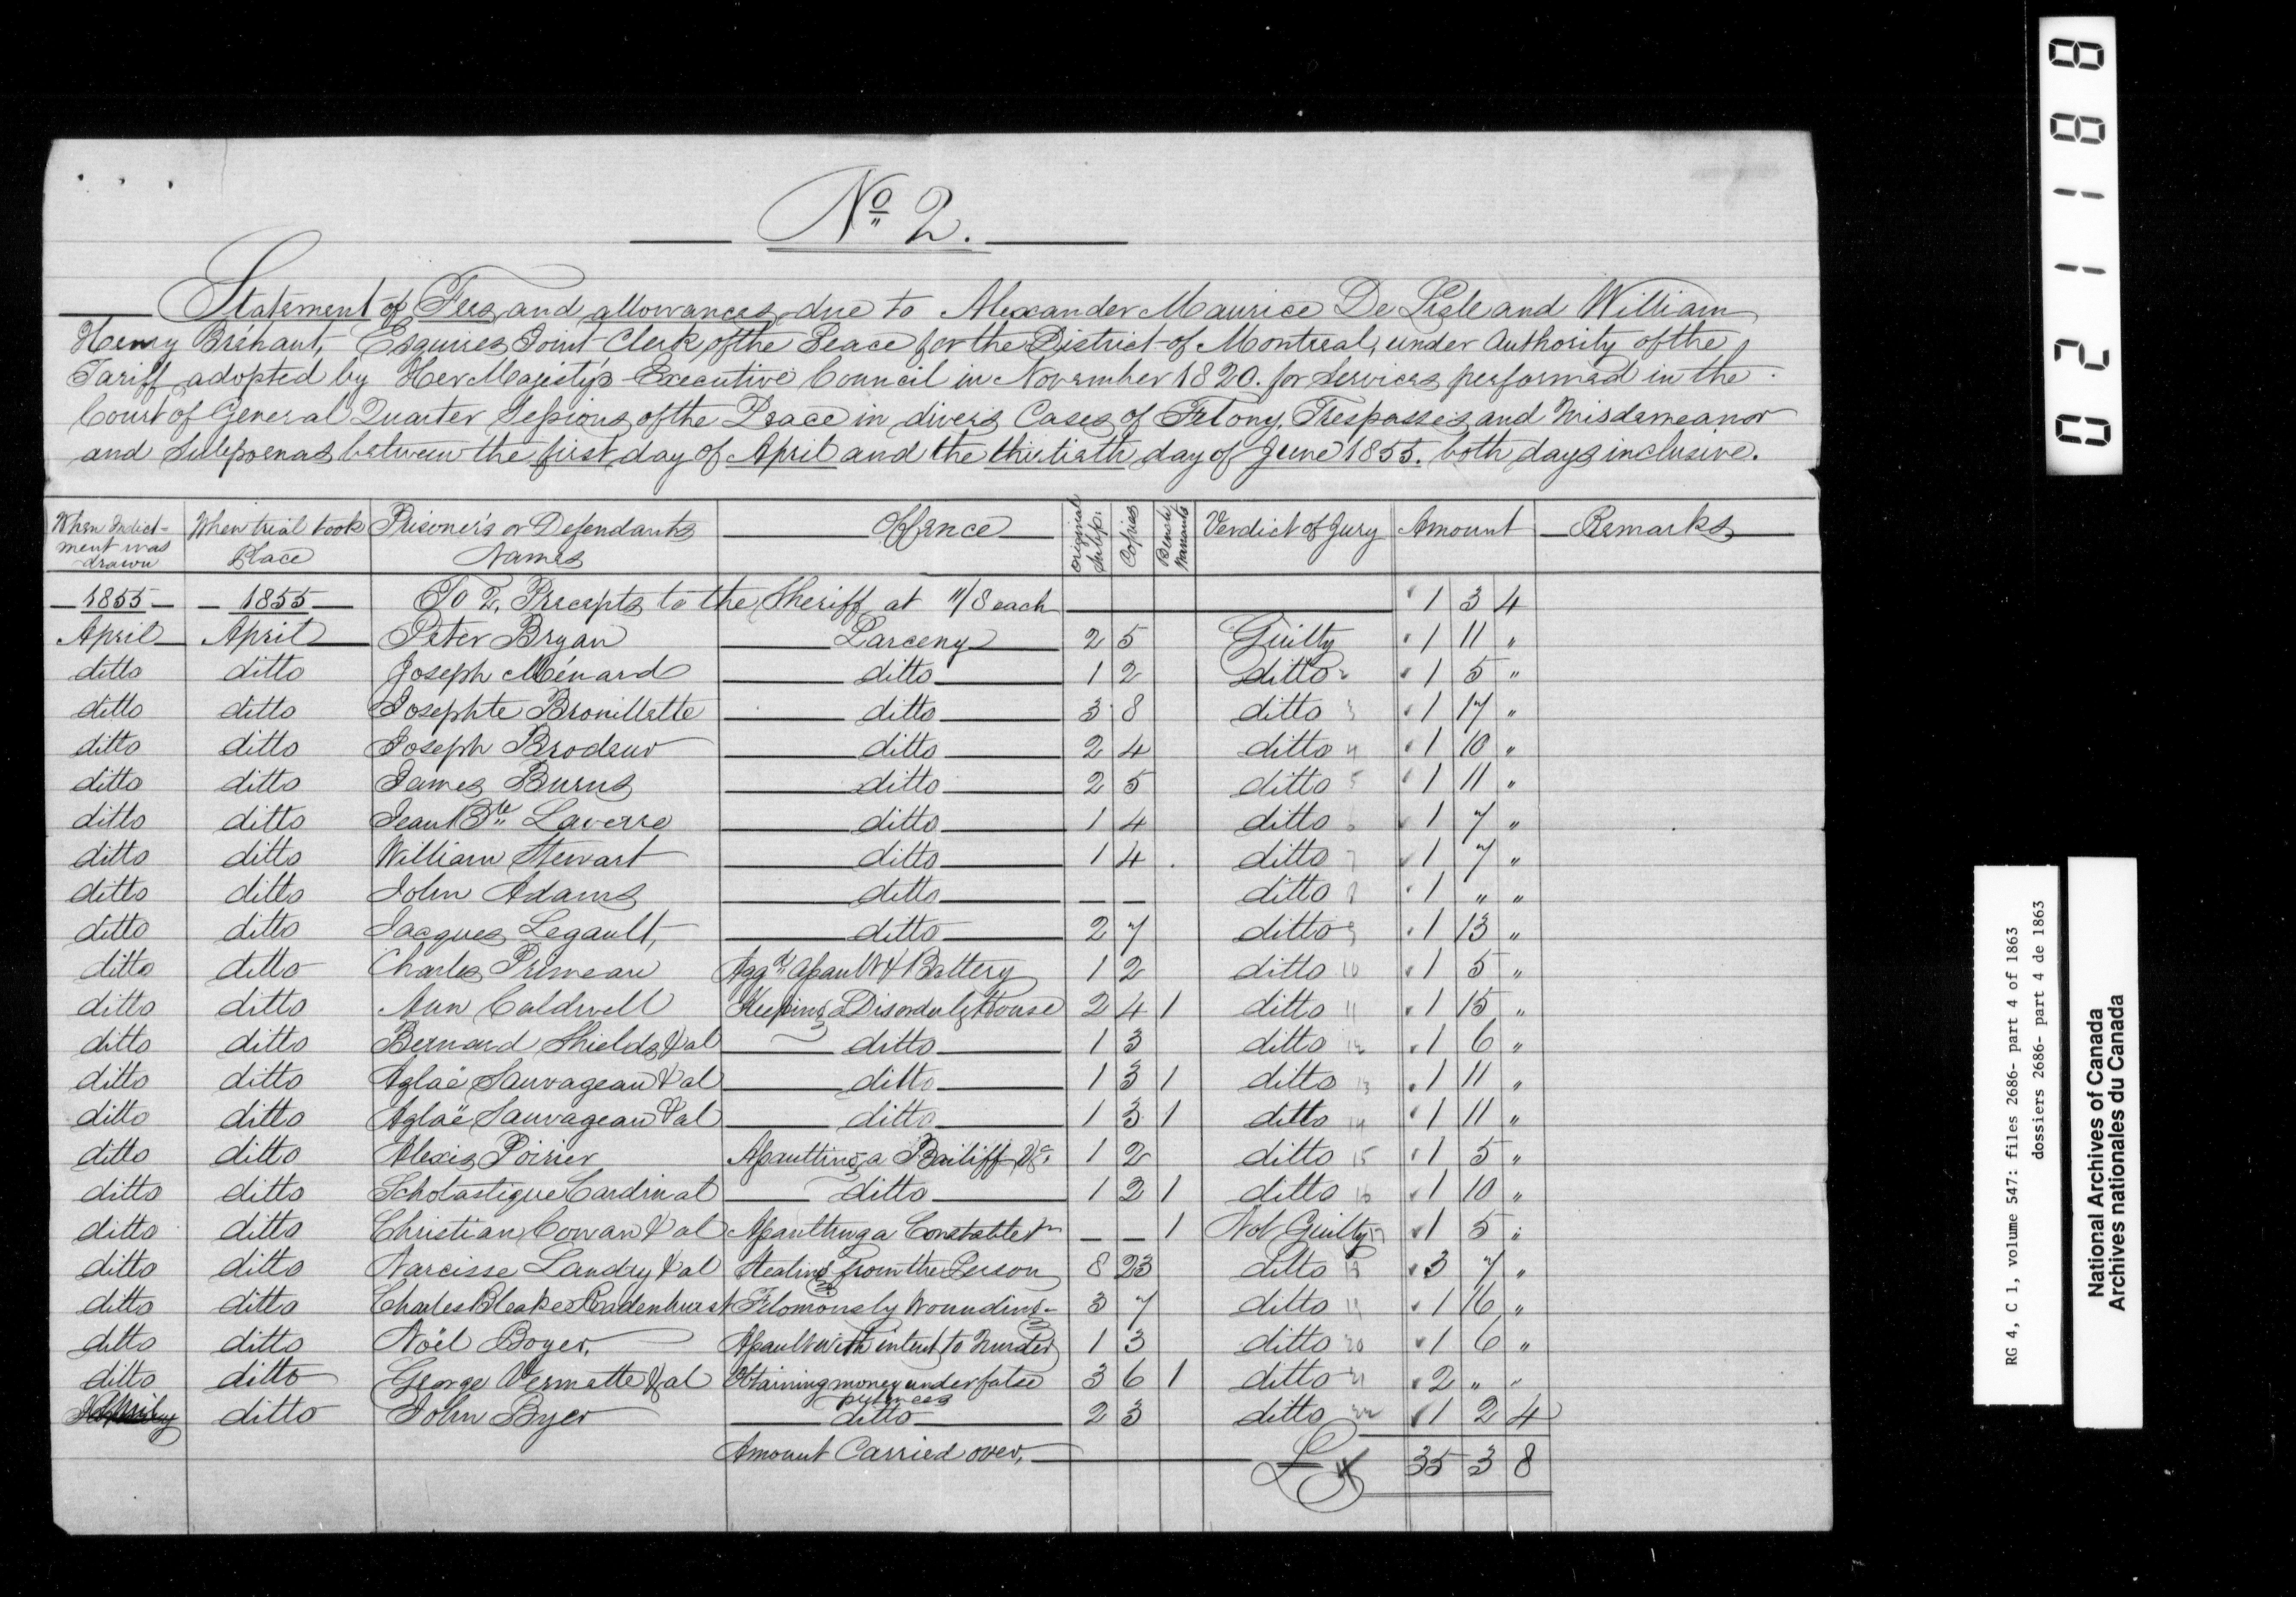 No 2.
Statement of Fees and allowances due to Alexander Maurice De Lisle and William
Henry Bréhaut, Esquires Joint Clerk of the Peace for the District of Montreal, under Authority of the
Tariff adopted by Her Majesty's Executive Council in November 1820. for Services performed in the
Court of General Quarter Sessions of the Peace in divers Cases of Felony, Trespasses and Misdemeanor
and Subpoenas between the first day of April and the thirtieth day of June 1855. both days inclusive.
When Indict-ment was drawn When trial took Place Prisoner's or Defendants Names Offence Original Subp: Copies Bench Warrants Verdict of Jury Amount Remarks
1855 1855 To 2, Precepts to the Sheriff at 11/8 each " 1 3 4
April April Peter Bryan Larceny 2 5 Guilty " 1 11 "
ditto ditto Joseph Ménard ditto 1 2 ditto 2 " 1 5 "
ditto ditto Josephte Brouillette ditto 3 8 ditto 3 " 1 17 "
ditto ditto Joseph Brodeur ditto 2 4 ditto 4 " 1 10 "
ditto ditto James Burns ditto 2 5 ditto 5 " 1 11 "
ditto ditto Jean Bte Laverre ditto 1 4 ditto 6 " 1 7 "
ditto ditto William Stewart ditto 1 4 ditto 7 " 1 7 "
ditto ditto John Adams ditto — — ditto 8 " 1 " "
ditto ditto Jacques Legault, ditto 2 7 ditto 9 " 1 13 "
ditto ditto Charles Primeau Aggd Assault & Battery 1 2 ditto 10 " 1 5 "
ditto ditto Ann Caldwell Keeping a Disorderly House 2 4 1 ditto 11 " 1 15 "
ditto ditto Bernard Shields & al ditto 1 3 ditto 12 " 1 6 "
ditto ditto Aglaë Sauvageau & al ditto 1 3 1 ditto 13 " 1 11 "
ditto ditto Aglaë Sauvageau & al ditto 1 3 1 ditto 14 " 1 11 "
ditto ditto Alexis Poirier Assaulting a Bailiff &c. 1 2 ditto 15 " 1 5 "
ditto ditto Scholastique Cardinal ditto 1 2 1 ditto 16 " 1 10 "
ditto ditto Christian Cowan & al Assaulting a Constable — — 1 Not Guilty 17 " 1 5 "
ditto ditto Narcisse Landry & al Stealing from the Person 8 23 ditto 18 " 3 7 "
ditto ditto Charles Bleaker Feloniously Wounding 3 7 ditto 19 " 1 16 "
ditto ditto Noël Boyer, Assault with intent to Murder 1 3 ditto 20 " 1 6 "
ditto ditto George Vermette & al Obtaining money under false pretences 3 6 1 ditto 21 " 2 " "
ditto John Byer ditto 2 3 ditto 22 " 1 2 4
Amount Carried over, £ 35 3 8
021188
RG 4, C 1, volume 547: files 2686- part 4 of 1863
dossiers 2686- part 4 de 1863
National Archives of Canada
Archives nationales du Canada